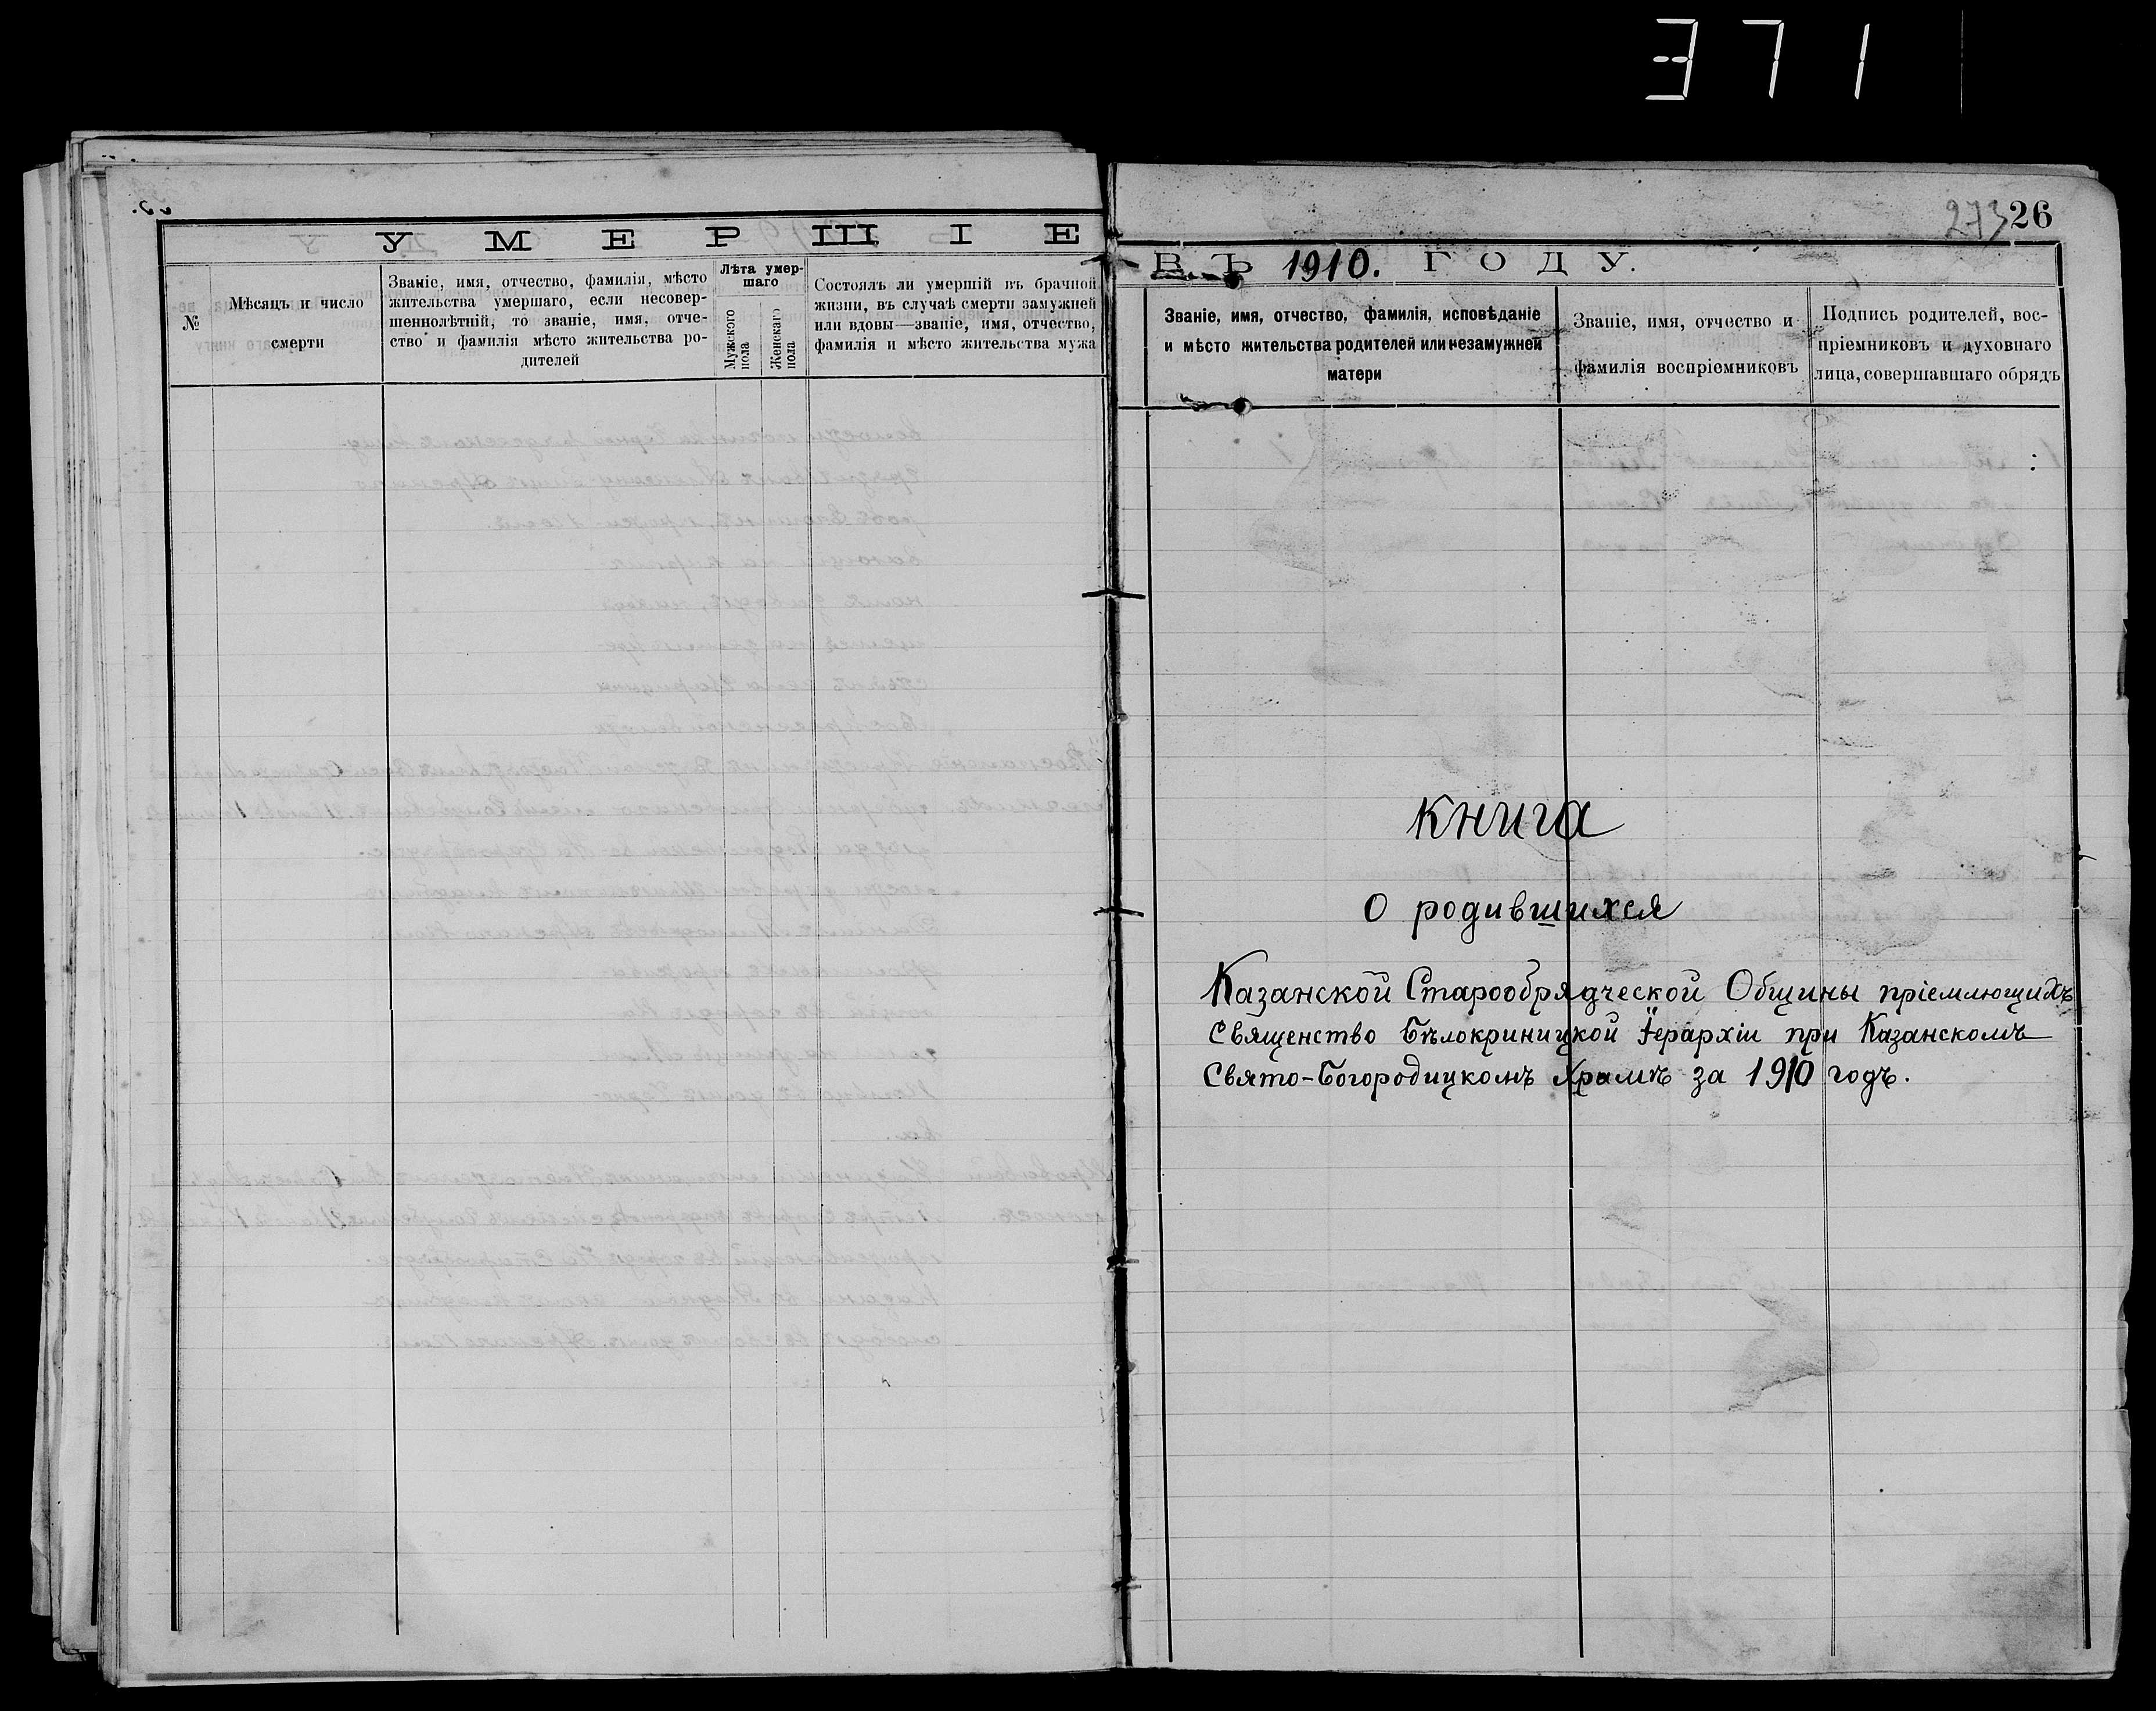 371
У М Е Р Ш І Е
№
Мѣсяцъ и число
смерти
Званіе, имя, отчество, фамилія, мѣсто
жительства умершаго, если несовер-
шеннолѣтній, то званіе, имя, отче-
ство и фамилія мѣсто жительства ро-
дителей
Лѣта умер-
шаго
Мужского
пола
Женскаго
пола
Состоялъ ли умершій въ брачной
жизни, въ случаѣ смерти замужней
или вдовы—званіе, имя, отчество,
фамилія и мѣсто жительства мужа
273 26
ВЪ 1910. ГОДУ.
Званіе, имя, отчество, фамилія, исповѣданіе
и мѣсто жительства родителей или незамужней
матери
Званіе, имя, отчество и
фамилія воспріемниковъ
Подпись родителей, вос-
пріемниковъ и духовнаго
лица, совершавшаго обрядъ
книга
о родившихся
Казанской Старообрядческой Общины пріемлющихъ
Священство Бѣлокриницкой Іерархіи при Казанскомъ
Свято-Богородицкомъ Храмѣ за 1910 годъ.